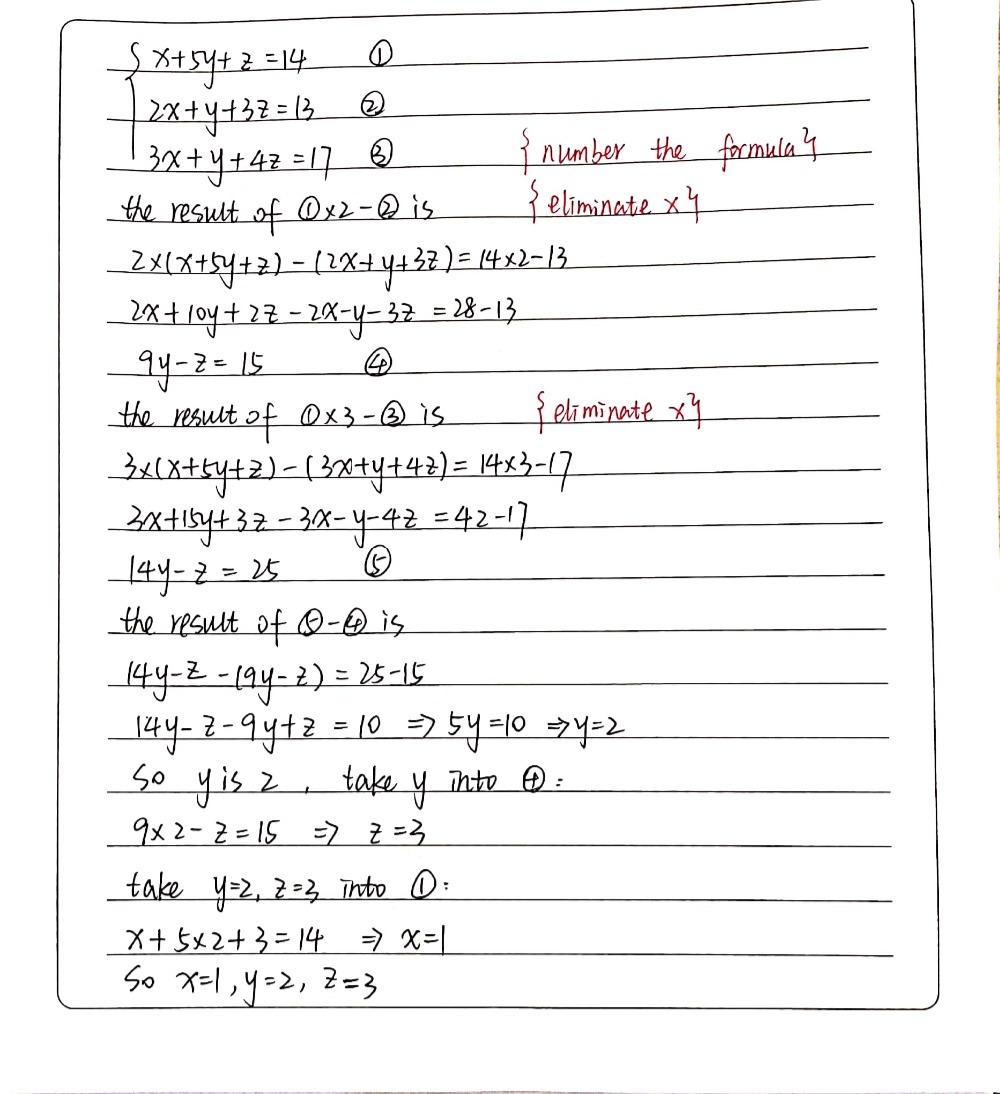 { x+5y+z=14 ①
2x+y+3z=13 ②
3x+y+4z=17 ③ {number the formula}
the result of ①×2-② is {eliminate x}
2×(x+5y+z)-(2x+y+3z)=14×2-13
2x+10y+2z-2x-y-3z=28-13
9y-z=15 ④
the result of ①×3-③ is {eliminate x}
3×(x+5y+z)-(3x+y+4z)=14×3-17
3x+15y+3z-3x-y-4z=42-17
14y-z=25 ⑤
the result of ⑤-④ is
14y-z-(9y-z)=25-15
14y-z-9y+z=10 ⇒ 5y=10 ⇒ y=2
So y is 2, take y into ④:
9×2-z=15 ⇒ z=3
take y=2, z=3 into ①:
x+5×2+3=14 ⇒ x=1
So x=1, y=2, z=3